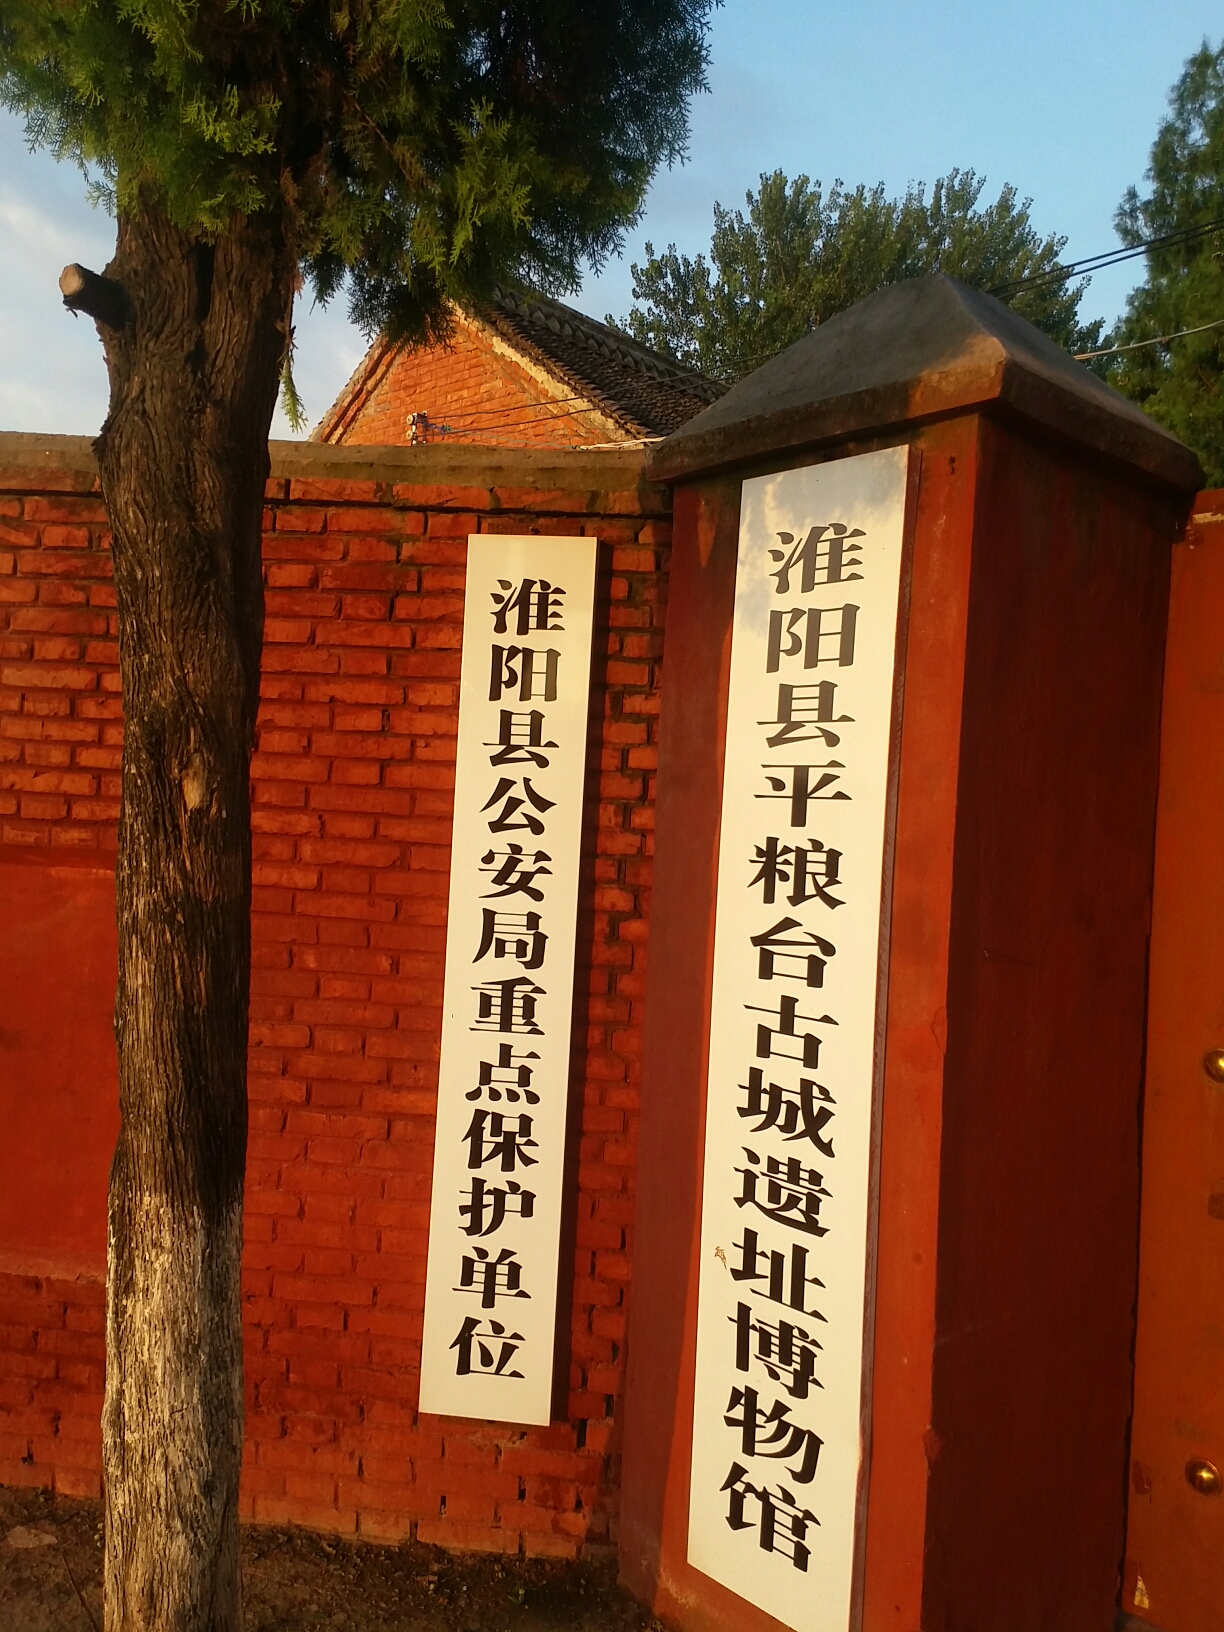 淮阳县公安局重点保护单位
淮阳县平粮台古城遗址博物馆